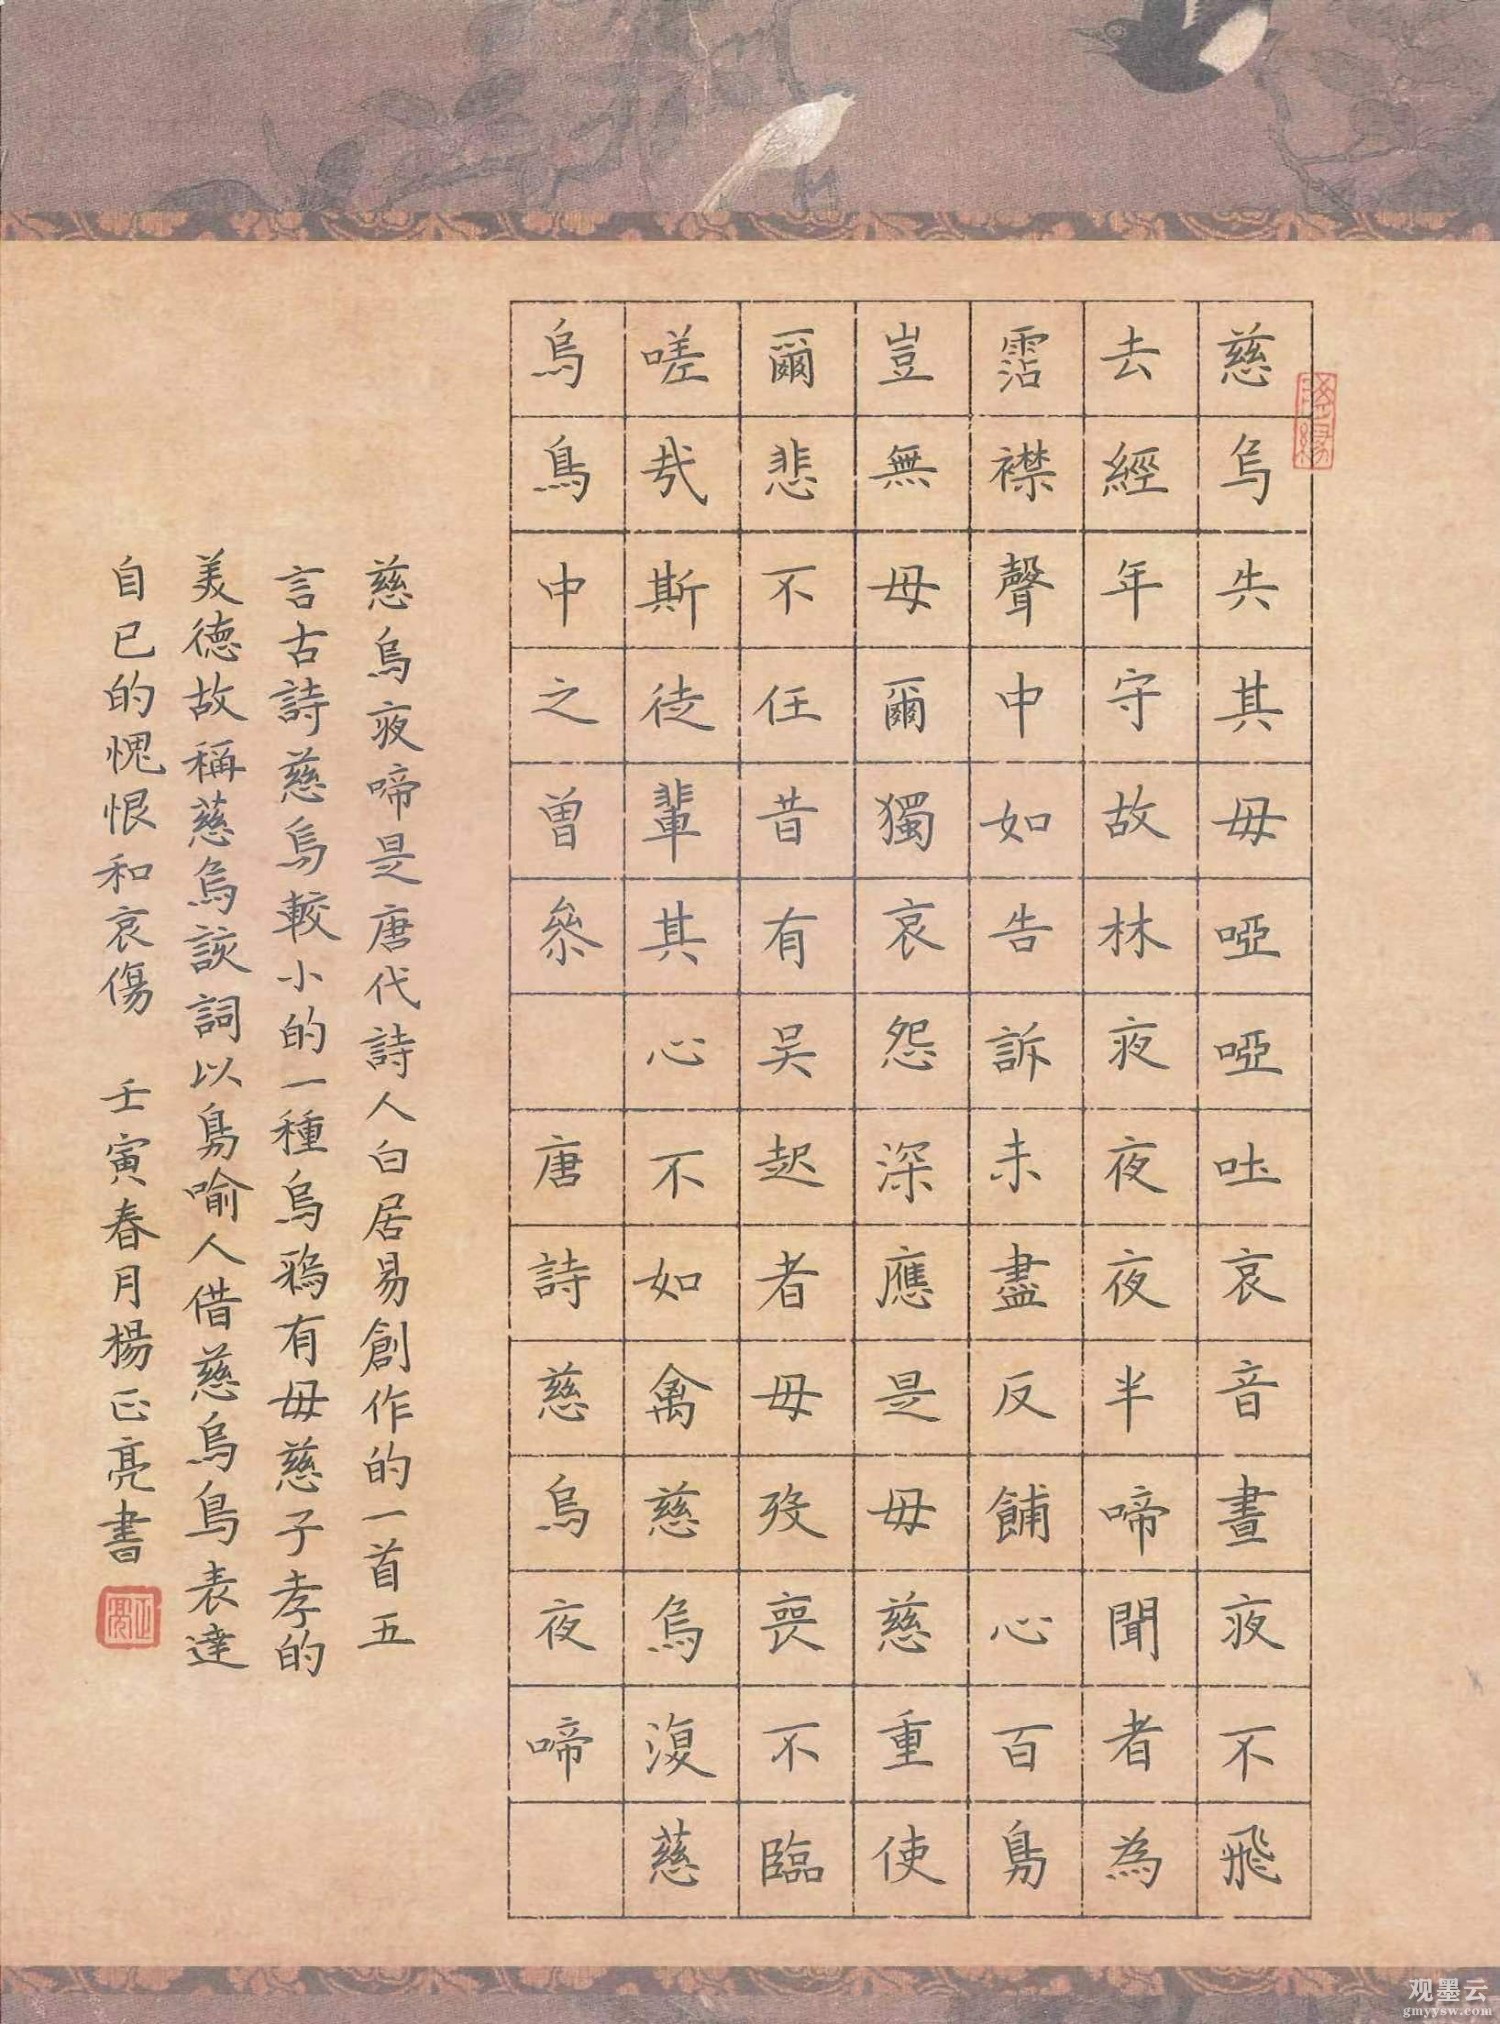 慈烏失其母啞啞吐哀音晝夜不飛
去經年守故林夜夜夜半啼聞者為
霑襟聲中如告訴未盡反餔心百鳥
豈無母爾獨哀怨深應是母慈重使
爾悲不任昔有吳起者母歿喪不臨
嗟哉斯徒輩其心不如禽慈烏復慈
烏鳥中之曾參 唐詩慈烏夜啼
慈烏夜啼是唐代詩人白居易創作的一首五
言古詩慈烏較小的一種烏鴉有母慈子孝的
美德故稱慈烏該詞以鳥喻人借慈烏鳥表達
自己的愧恨和哀傷 壬寅春月楊正亮書
正亮
观墨云
gmyysw.com